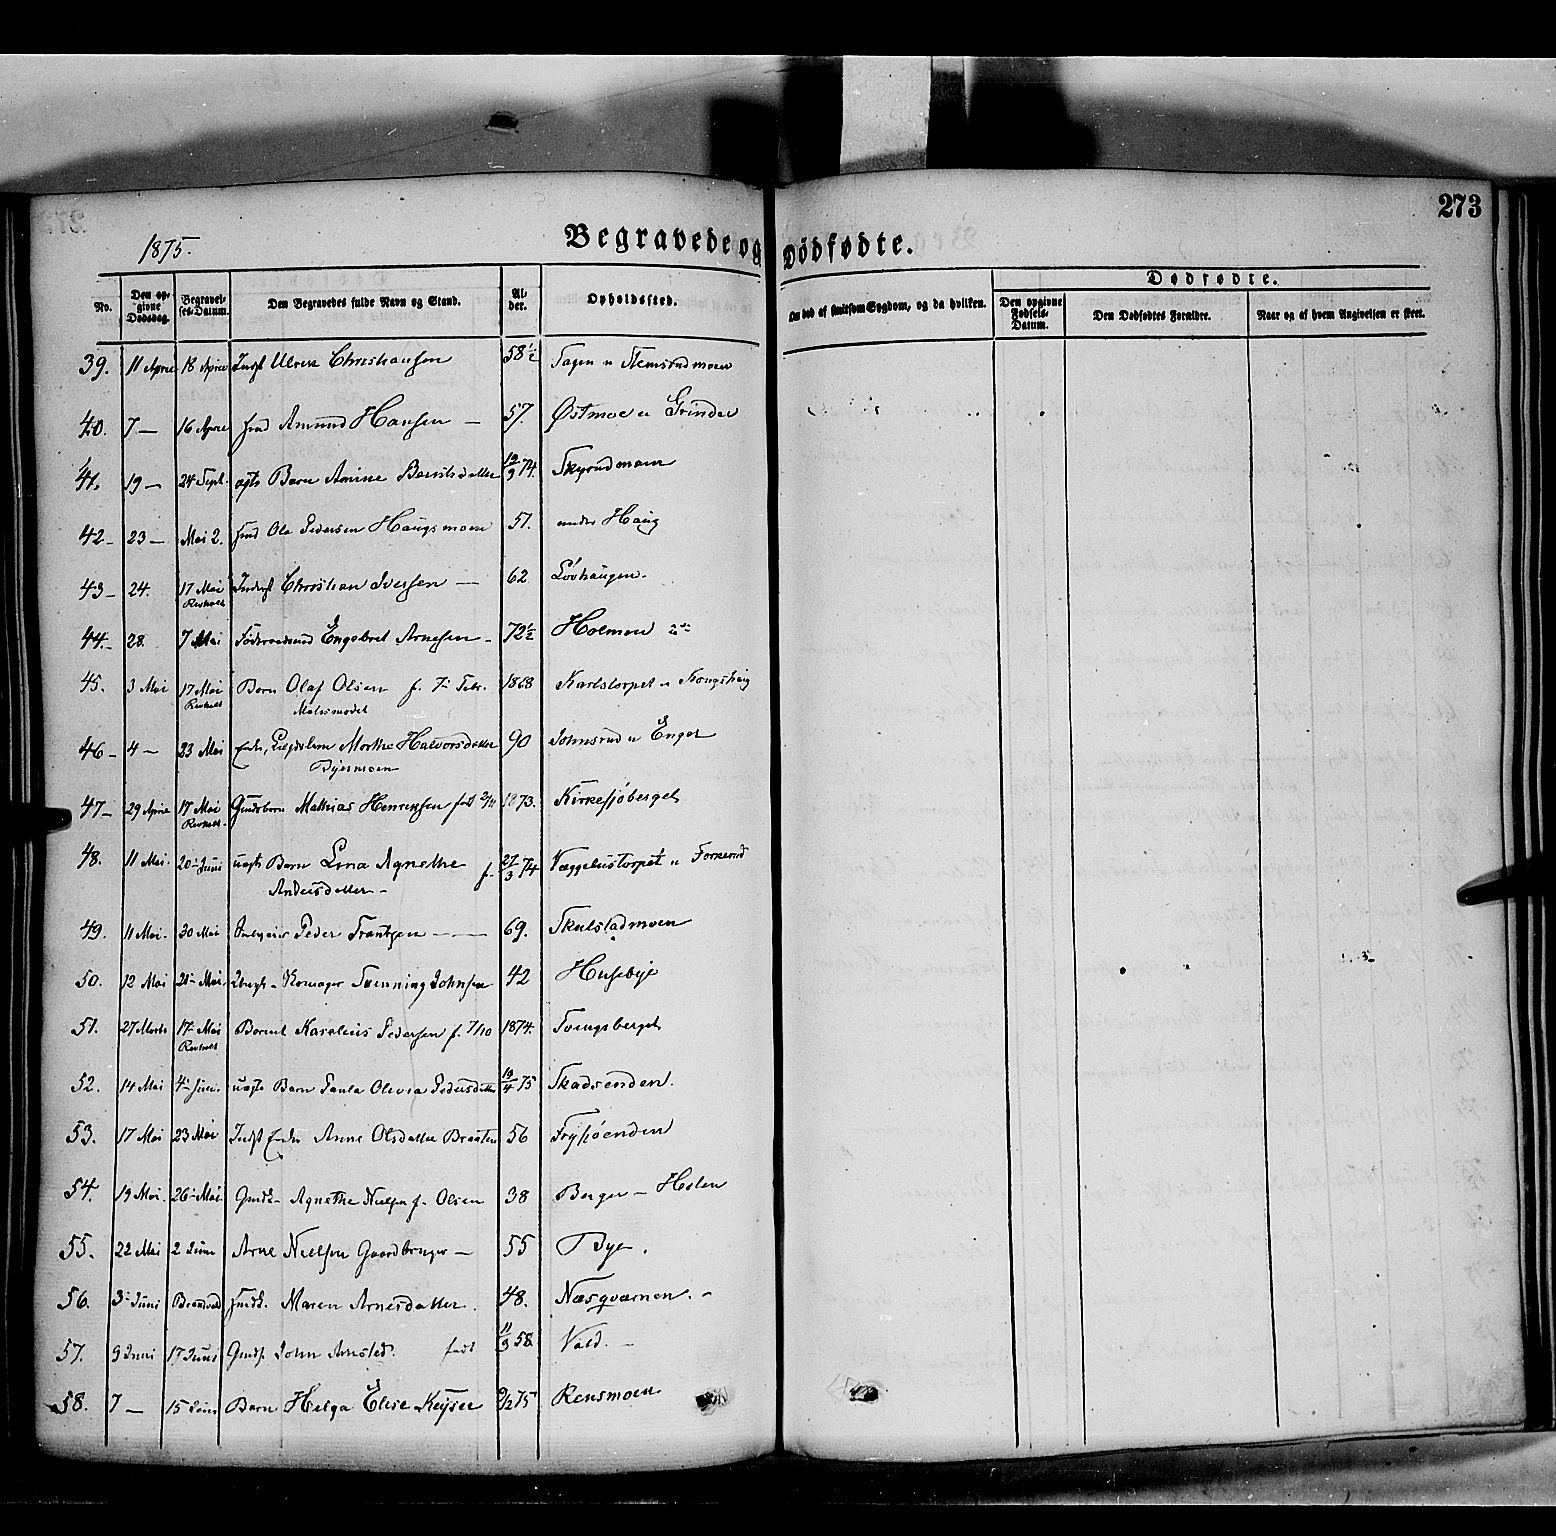 273
1875.
Begravede og Dødfødte.
No.
Den opgivne Dødsdag.
Begravelses-Datum.
Den Begravedes fulde Navn og Stand.
Alder.
Opholdssted.
Om død af smitsom Sygdom, og da hvilken.
Dødfødte.
Den opgivne Fødsels-Datum.
Den Dødfødtes Forældre.
Naar og af hvem Angivelsen er skeet.
39. 11 April 18 April Indst Christiansen 58 1/2
40. 7 — 16 April Amund Hansen — 57. Østmoe u Grinder
41. 19 — 24 Sept. ægte Barn Amine Berntsdatter 19/3 74. Skyrudmoen
42 – 23 — Mai 2. Ole Pedersen Haugsmoen 51. under Haug
43 – 24. 17 Mai Inderst Christian Iversen — 62 Løvhaugen.
Revholt
44. – 28. 7 Mai Engebret Arnesen – 72 1/2 Holmen
45. 3 Mai 17 Mai Barn Olaf Olsen f. 7 Febr. 1868 Karlstorpet u Kongshaug
Revholt
46 – 4 — 23 Mai Enke, Lægdslem Marthe Halvorsdatter 90 Johnsrud u Enger
Byermoen
47 – 29 April 17 Mai Gmdsbarn Mathias Henriksen født 2/11 1873. Kirkesjøberget
Revholt
48. 11 Mai. 20 Juni uægte Barn Lina Agnethe f. 27/3 74 u
Andersdatter –
49. 11 Mai. 30 Mai Peder Frantzen — 69. Skulstadmoen
50. 12 Mai 21 Mai. Svenning Johnsen 42 Husebye
51. 27 Marts 17 Mai Barnet Karelius Pedersen f. 7/10 1874. Tvengsberget
Revholt
52. 14 Mai 4 Juni. uægte Barn Paula Olevia Pedersdatter 19/4 75 Skadsenden.
53. 17 Mai 23 Mai Indst Enke Anne Olsdatter Braaten 56 Frysjøenden
54. 19 Mai. 26 Mai. Gmdk – Agnethe Nielsen f. Olsen 38 Berger –
55. 22 Mai 2 Juni Arne Nielsen Gaardbruger — 55 Bye.
56. 3 Juni Maren Arnesdatter. 48. Næsqværnen. –
57. 9 Juni 17 Juni John Arnsted. født 11/3 58 Vold. –
58. 7 — 15 Juni Barn Helga Elise Keyser 9/2 75 Rensmoen